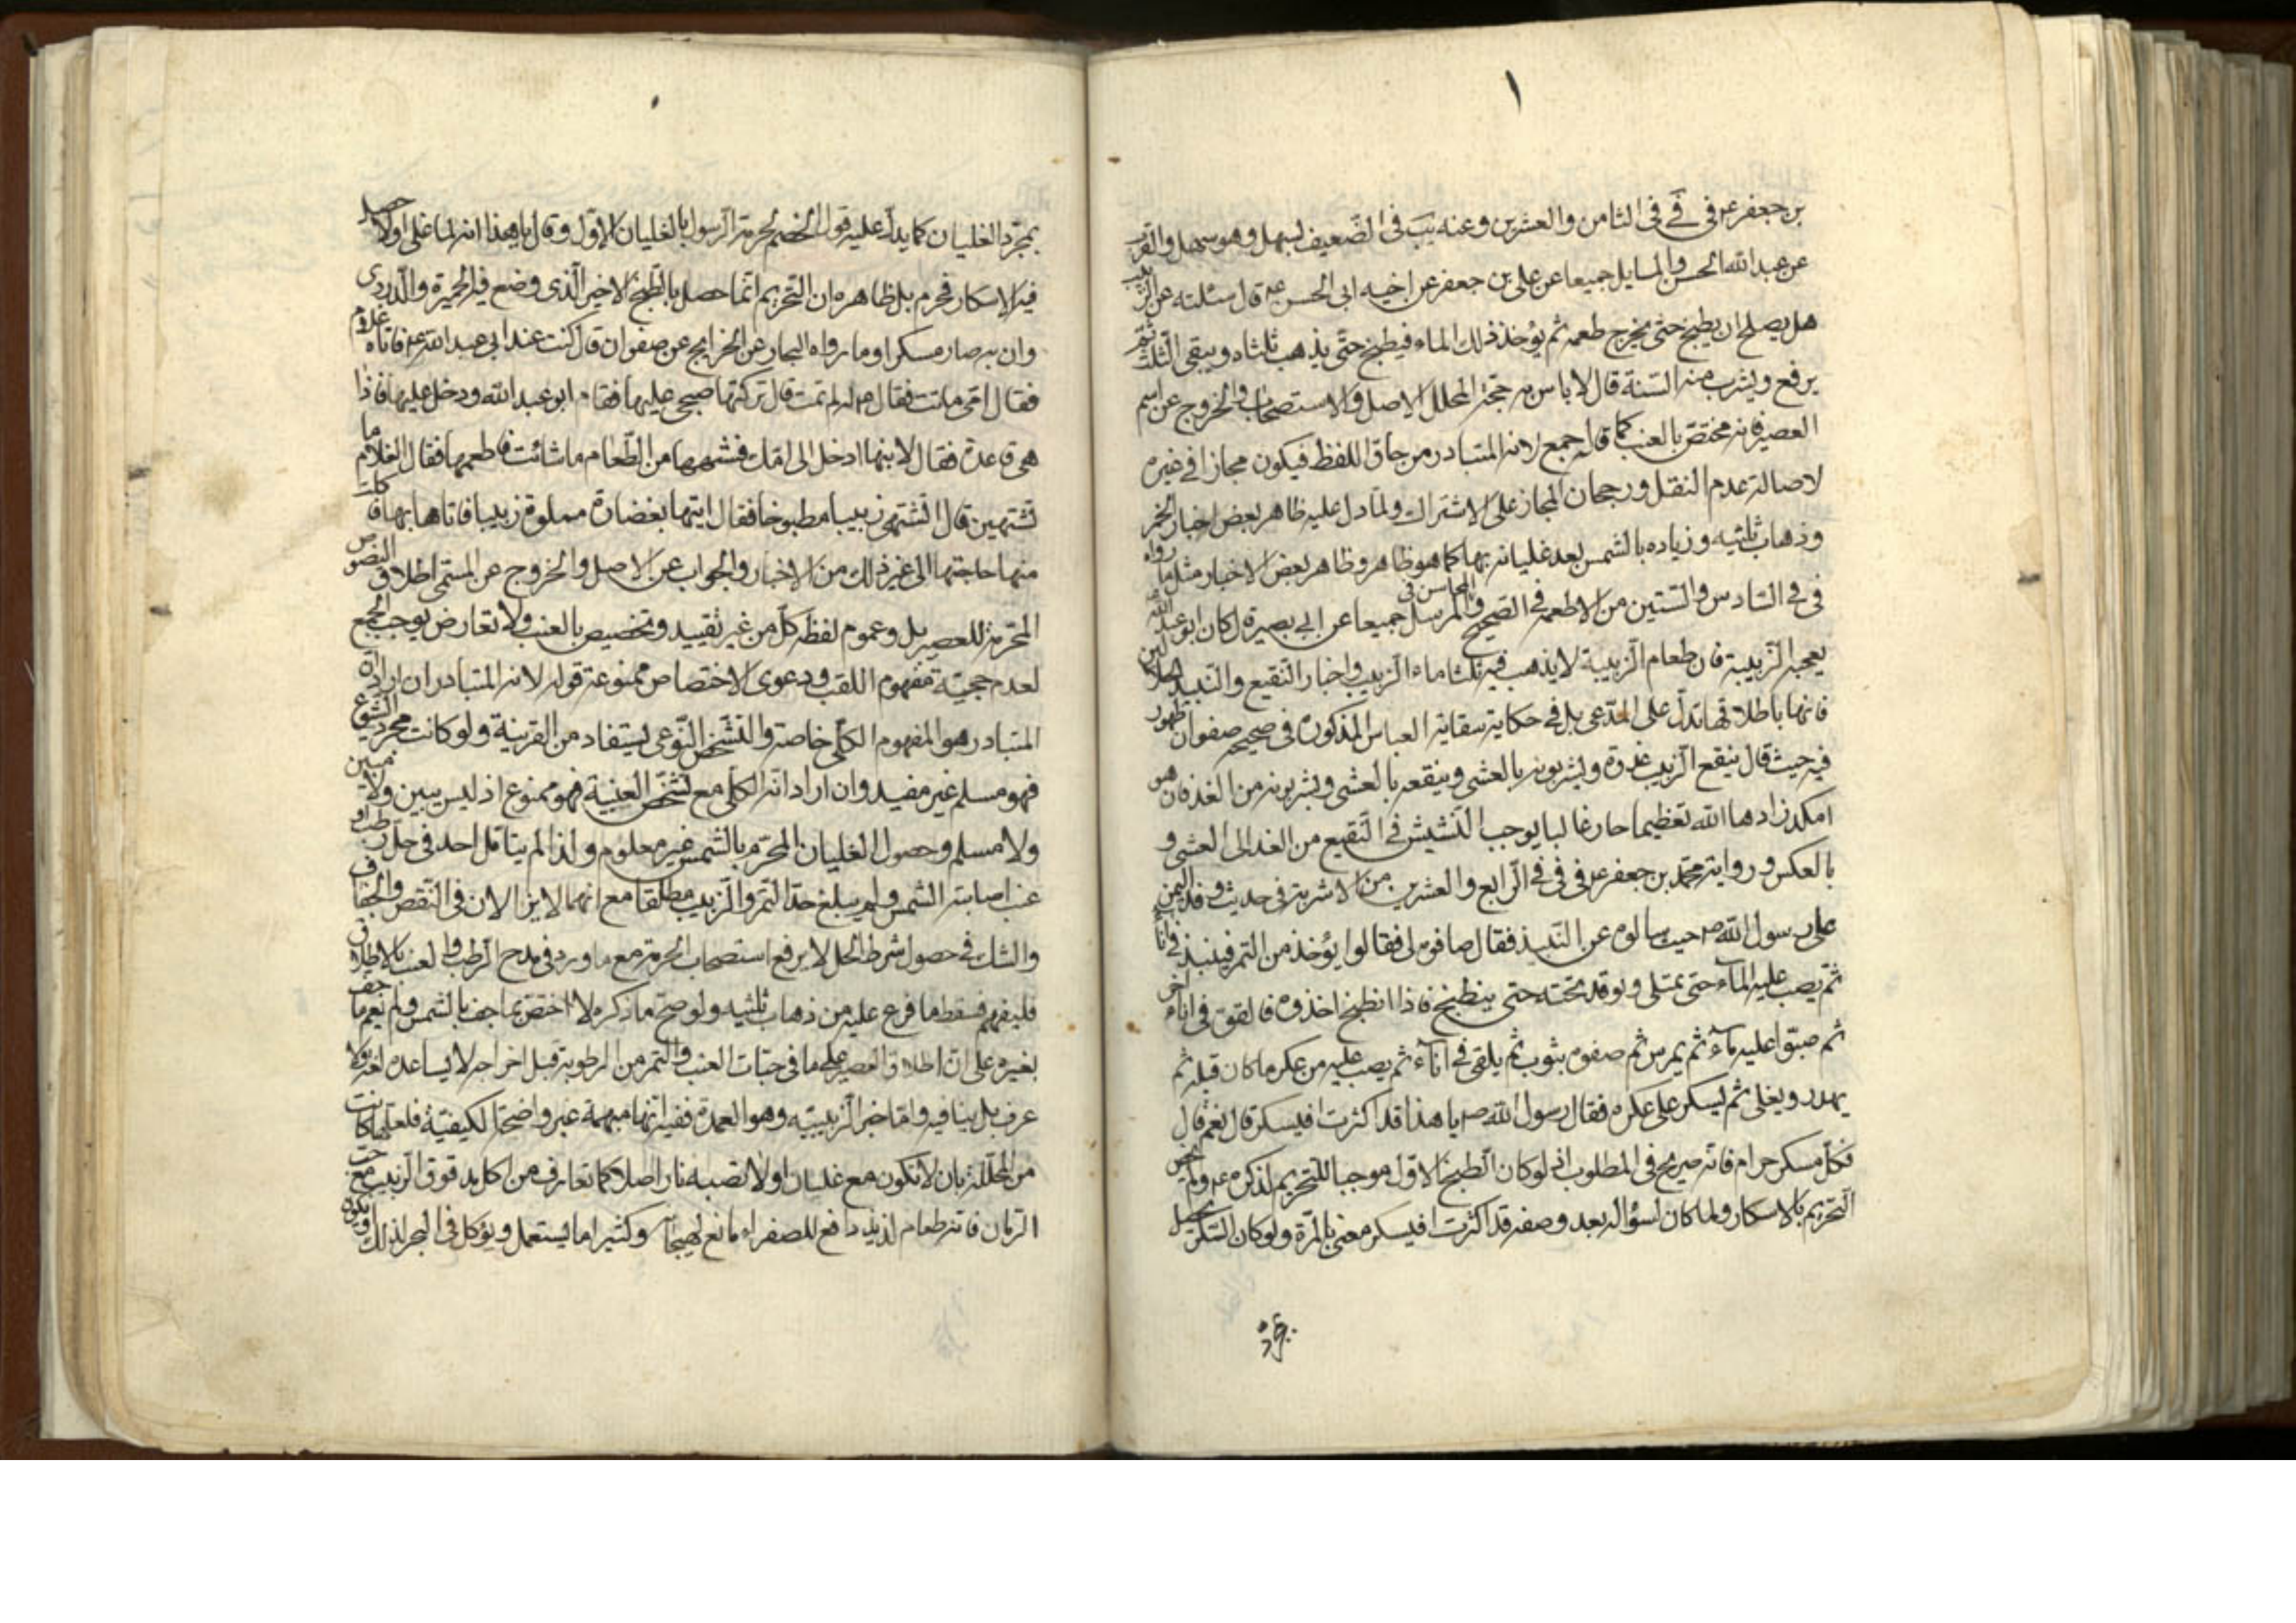 بن جعفر ع في في في الثامن والعشرين وعنه يب في الضعيف لسهل وهو سهل والقرب
عن عبد الله الحسن والمسايل جميعا عن علي بن جعفر عن اخيه ابي الحسن ع قال سئلته عن الزبيب
هل يصلح ان يطبخ حتى يخرج طعمه ثم يؤخذ ذلك الماء فيطبخ حتى يذهب ثلثاه ويبقى الثلث ثم
يرفع ويشرب منه السنة قال لا باس به حجة المحلل الاصل والاستصحاب والخروج عن اسم
العصير فانه مختص بالعنب كما قاله جمع لانه المتبادر من حاق اللفظ فيكون مجازا في غيره
لاصالة عدم النقل ورجحان المجاز على الاشتراك ولما دل عليه ظاهر بعض اخبار الخمر
وذهاب ثلثيه وزياده بالشمس بعد غليانه بها كما هو ظاهر وظاهر بعض الاخبار مثل ما رواه
في في السادس والستين من الاطعمة في الصحيح والمرسل المحاسن في جميعا عن ابي بصير قال كان ابو عبد الله ع
يعجبه الزبيبة فان طعام الزبيبة لا يذهب فيه ثلثا ماء الزبيب واخبار النقيع والنبيذ الحلالين
فانها باطلاقها تدل على المدعى بل في حكاية سقاية العباس المذكورة في صحيحه صفوان ظهور
فيه حيث قال ينقع الزبيب غدوة ويشربونه بالعشي وينقعه بالعشي ويشربونه من الغد فان هو
امكد زادها الله تعظيما حار غالبا يوجب النشيش في النقيع من الغد الى العشي و
بالعكس ورواية محمد بن جعفر ع في في في الرابع والعشرين من الاشربة في حديث وفد اليمن
على رسول الله ص حيث سالوه عن النبيذ فقال صافوه لي فقالوا يؤخذ من التمر فينبذ في اناء
ثم يصب عليه الماء حتى يمتلي ويوقد تحته حتى ينطبخ فاذا انطبخ اخذوه فالقوه في اناء اخر
ثم صبوا عليه ماء ثم يمرس ثم صفوه بثوب ثم يلقى في اناء ثم يصب عليه من عكر ما كان قبله ثم
يهدر ويغلي ثم يسكن على عكره فقال رسول الله ص يا هذا قد اكثرت افيسكر قال نعم قال
فكل مسكر حرام فانه صريح في المطلوب اذ لو كان الطبخ الاول موجبا للتحريم لذكره ع ولم يخص
التحريم بالاسكار ولما كان لسؤاله بعد وصفه قد اكثرت افيسكر معنى بالمرة ولو كان السكر يحصل
بمجرد الغليان كما يدل عليه قول الخصم لحرمة الرسول بالغليان الاول وقال يا هذا انه لما غلى اولا حصل
فيه الاسكار فحرم بل ظاهره ان التحريم انما حصل بالطبخ الاخير الذي وضع فيه الخميرة والدردي
وان به صار مسكرا وما رواه البحار عن الخرايج عن صفوان قال كنت عند ابي عبد الله ع فاتاه غلام
فقال امي ماتت فقال ع له لم تمت قال تركتها مسجى عليها فقام ابو عبد الله ودخل عليها فاذا
هي قاعدة فقال لابنها ادخل الى امك فشهها من الطعام ما شائت فاطعمها فقال الغلام ما
تشتهين قال اشتهي زبيبا مطبوخا فقال ايتها بغضارة مملوة زبيبا فاتاها بها فاكلت
منها حاجتها الى غير ذلك من الاخبار والجواب عن الاصل والخروج عن المسمى اطلاق النصوص
المحرمة للعصير بل وعموم لفظه كل من غير تقييد وتخصيص بالعنب ولا تعارض يوجب الجمع
لعدم حجيته مفهوم اللقب ودعوى الاختصاص ممنوعة قوله لانه المتبادر ان اراد ان
المتبادر هو المفهوم الكلي خاصة والتشخص النوعي يستفاد من القرينة ولو كانت مجرد الشيوع
فهو مسلم غير مفيد وان اراد انه الكلي مع تشخص العنبية فهو ممنوع اذ ليس ببين ولا مبين
ولا مسلم وحصول الغليان المحرم بالشمس غير معلوم ولذا لم يتامل احد في حل رطب او
عنب اصابته الشمس ولم يبلغ حد التمر والزبيب مطلقا مع انهما لا يزالان في النقص والجفاف
والشك في حصول شرط الحل لا يرفع استصحاب الحرمة مع ما ورد في مدح الرطب والعنب بالاطلاق
فليفهم فسقط ما فرع عليه من ذهاب ثلثيه ولو صح ما ذكره لاختص بما جف بالشمس ولم يعم ما جف
بغيره على ان اطلاق العصير على ما في حبات العنب والتمر من الرطوبة قبل اخراجه لا يساعده لغة ولا
عرف بل ينافيه واما خبر الزبيبيه وهو العمدة ففيه انها مبهمة غير واضحة الكيفية فلعلها كانت
من المحللة بان لا تكون مع غليان اولا تصبه نار اصلا كما تعارف من اكل مدقوق الزبيب مع حب
الرمان فانه طعام لذيذ دافع للصفراء مانع لهيجانه وكثيرا ما يستعمل ويؤكل في البحر لذلك ويكون